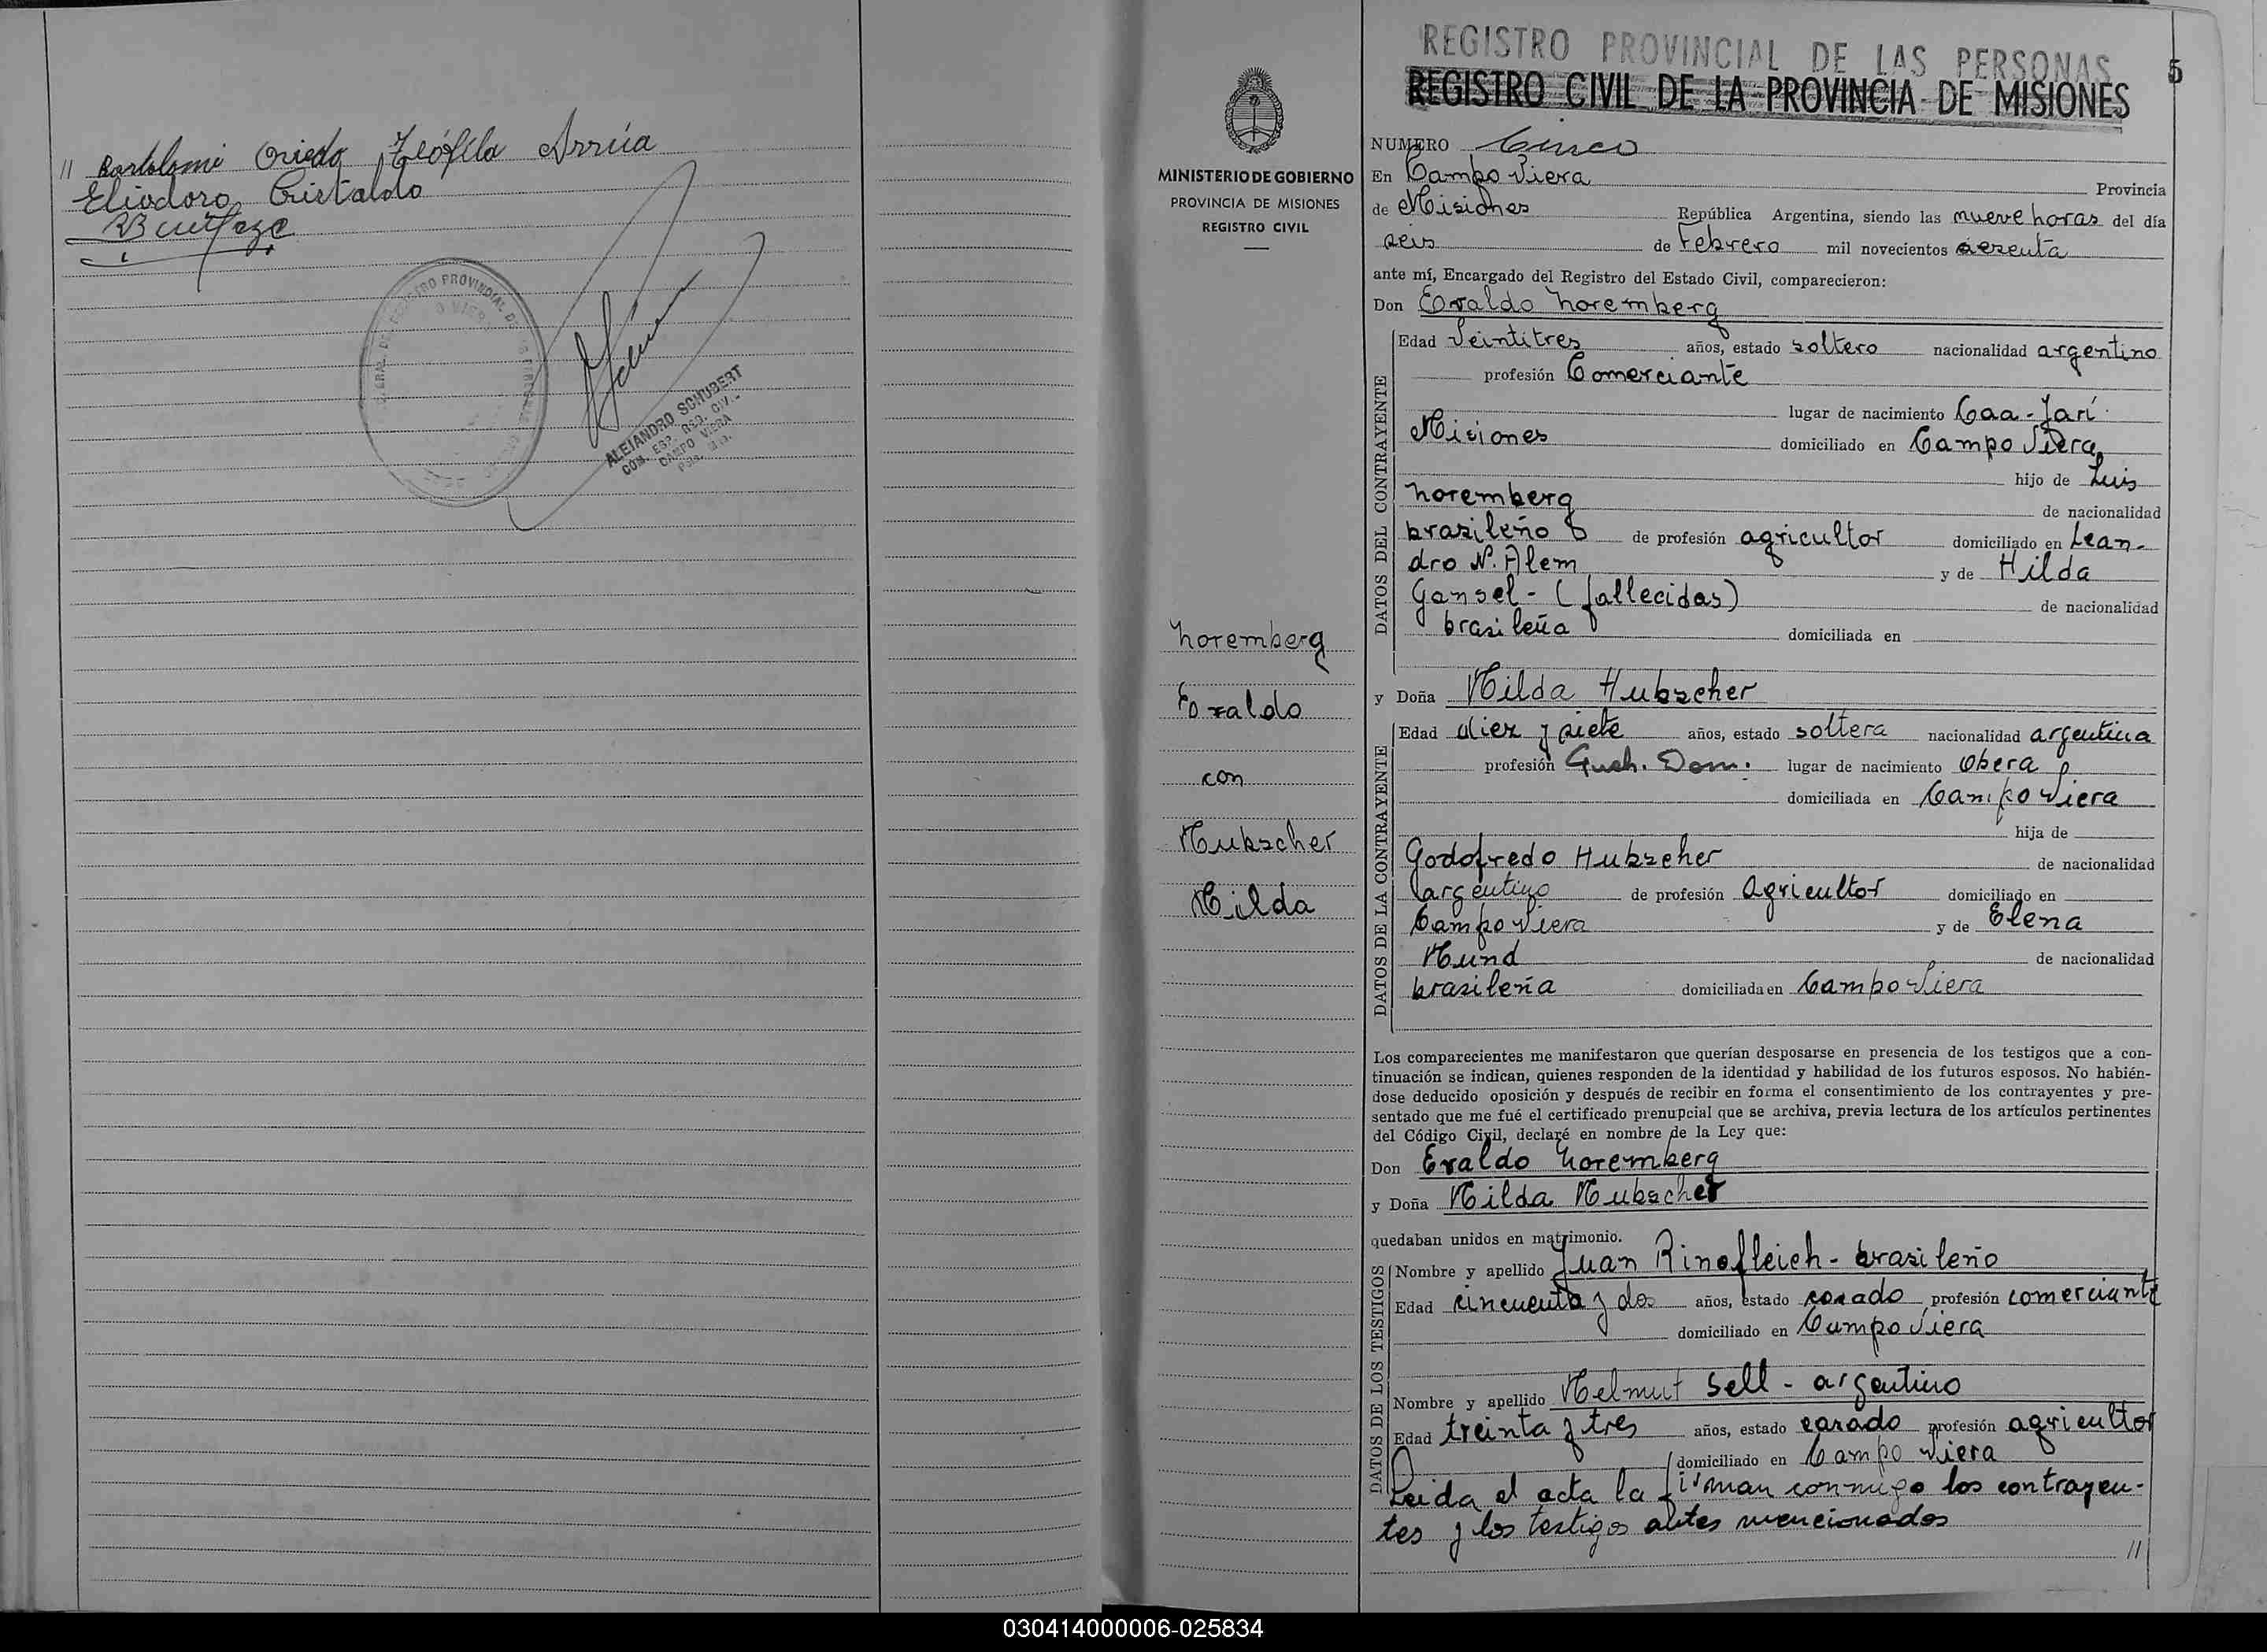 // Bartolomé Oviedo Teófila Arrúa
Eliodoro Cristaldo
ALEJANDRO SCHUBERT
CAMPO VIERA
MINISTERIO DE GOBIERNO
PROVINCIA DE MISIONES
REGISTRO CIVIL
Noremberg
Evaldo
con
Hubscher
Hilda
REGISTRO PROVINCIAL DE LAS PERSONAS
REGISTRO CIVIL DE LA PROVINCIA DE MISIONES
5
NUMERO Cinco
En Campo Viera Provincia
de Misiones República Argentina, siendo las nueve horas del día
seis de Febrero mil novecientos sesenta
ante mí, Encargado del Registro del Estado Civil, comparecieron:
Don Evaldo Noremberg
DATOS DEL CONTRAYENTE
Edad Veintitres años, estado soltero nacionalidad argentino
profesión Comerciante
lugar de nacimiento Caa-Yarí
Misiones domiciliado en Campo Viera
hijo de Luis
Noremberg de nacionalidad
brasileño de profesión agricultor domiciliado en Lean-
dro N. Alem y de Hilda
Gansel - (fallecidas) de nacionalidad
brasileña domiciliada en
y Doña Hilda Hubscher
DATOS DE LA CONTRAYENTE
Edad diez y siete años, estado soltera nacionalidad argentina
profesión Queh. Dom. lugar de nacimiento Obera
domiciliada en Campo Viera
hija de
Godofredo Hubscher de nacionalidad
argentino de profesión Agricultor domiciliado en
Campo Viera y de Elena
Hund de nacionalidad
brasileña domiciliada en Campo Viera
Los comparecientes me manifestaron que querían desposarse en presencia de los testigos que a con-
tinuación se indican, quienes responden de la identidad y habilidad de los futuros esposos. No habién-
dose deducido oposición y después de recibir en forma el consentimiento de los contrayentes y pre-
sentado que me fué el certificado prenupcial que se archiva, previa lectura de los artículos pertinentes
del Código Civil, declaré en nombre de la Ley que:
Don Evaldo Noremberg
y Doña Hilda Hubscher
quedaban unidos en matrimonio.
DATOS DE LOS TESTIGOS
Nombre y apellido Juan Rinofleich - brasileño
Edad cincuenta y dos años, estado casado profesión comerciante
domiciliado en Campo Viera
Nombre y apellido Helmut Sell - argentino
Edad treinta y tres años, estado casado profesión agricultor
domiciliado en Campo Viera
Leida el acta la firman conmigo los contrayen-
tes y los testigos antes mencionados
//
030414000006-025834